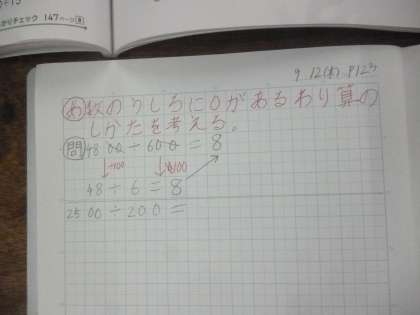 かりチェック 147ページ 8
9.12(水) P123
あ 数のうしろに0があるわり算の
しかたを考える。
問 4800÷600=8
÷100 ÷100
48÷6=8
2500÷200=